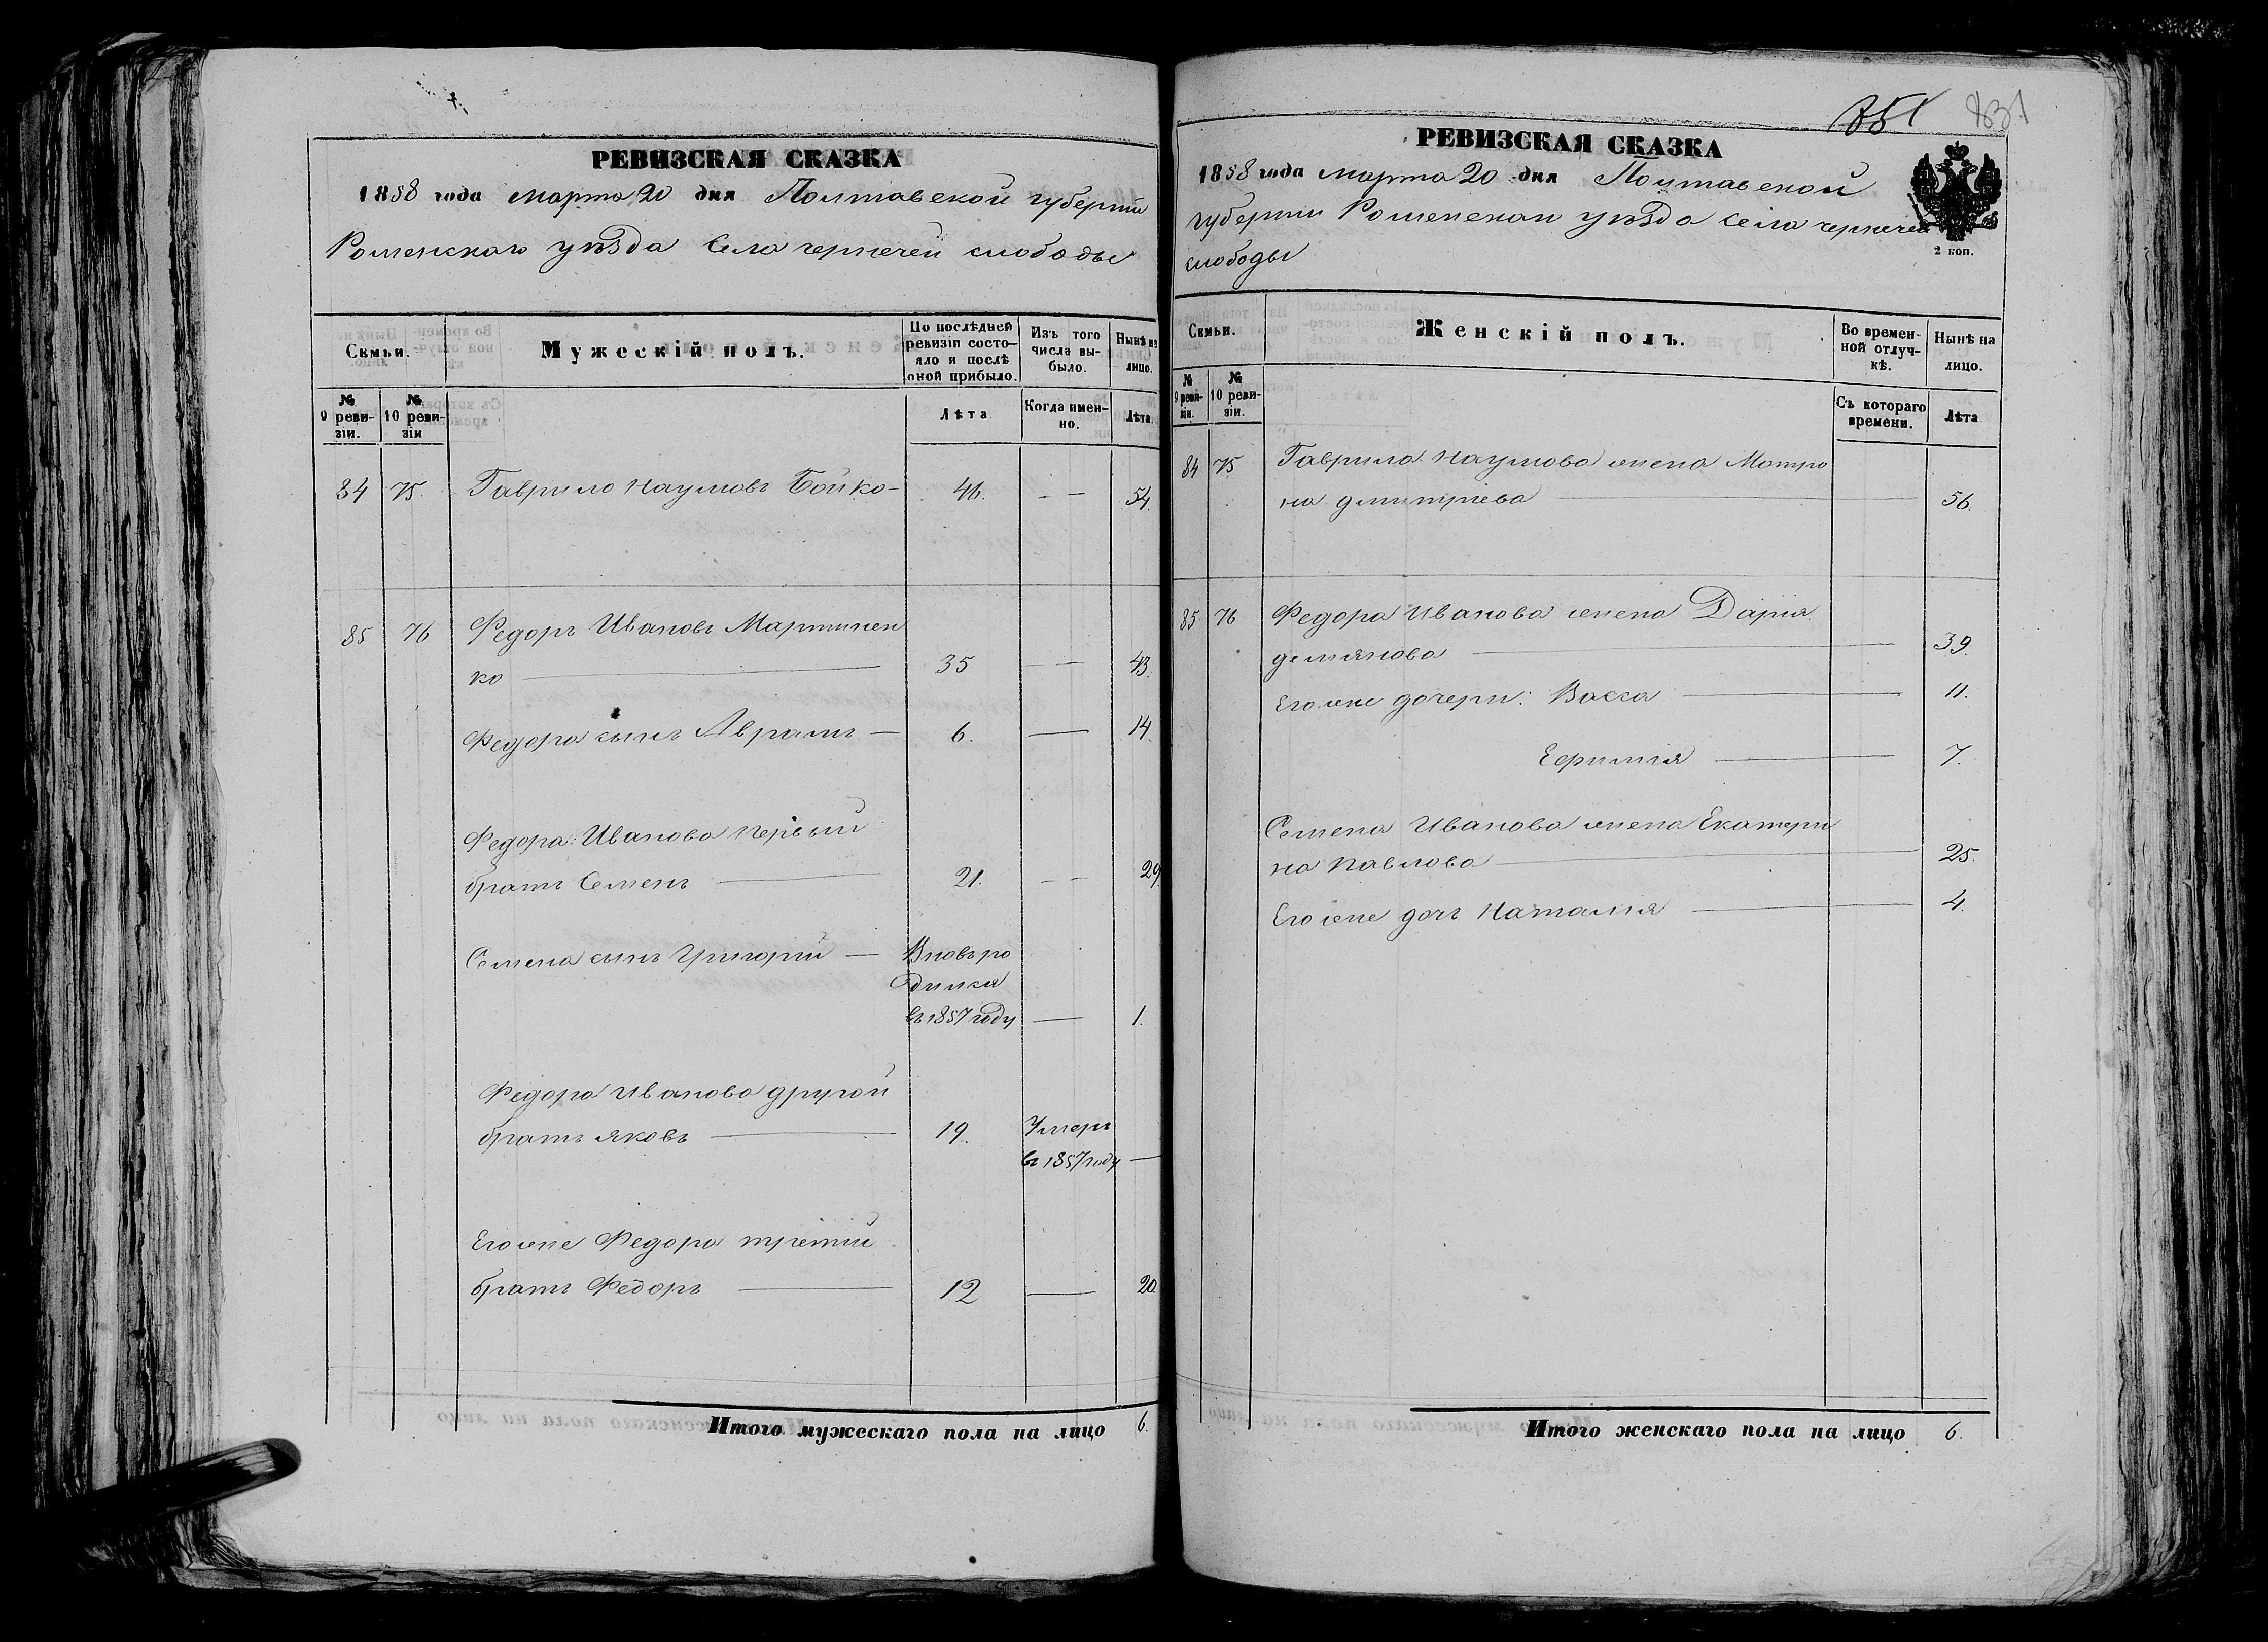 РЕВИЗСКАЯ СКАЗКА
1858 года марта 20 дня Полтавской губернии
Роменскаго уѣзда Села чернечей слободы
Семьи.
Мужескій полъ.
По послѣдней ревизіи состояло и послѣ оной прибыло.
Изъ того числа выбыло.
Нынѣ на лицо.
№ 9 ревизіи.
№ 10 ревизіи
Лѣта
Когда именно.
Лѣта
84 75. Гаврило Наумовъ Бойко 46. 54.
85 76 Федоръ Ивановъ Мартинен
ко 35 43.
Федора сынъ Аврамъ 6. 14.
Федора Иванова первый
братъ Семенъ 21. 29.
Семена сынъ Григорій Вновь ро
дился
въ 1857 году 1.
Федора Иванова другой
братъ Яковъ 19. Умеръ
въ 1857 году
Его же Федора третій
братъ Федоръ 12 20.
Итого мужескаго пола на лицо 6.
851 831
РЕВИЗСКАЯ СКАЗКА
1858 года марта 20 дня Полтавской
губернии Роменскаго уѣзда села чернечей
слободы
2 коп.
Семьи.
Женскій полъ.
Во временной отлучкѣ.
Нынѣ на лицо.
№ 9 ревизіи.
№ 10 ревизіи.
Съ котораго времени.
Лѣта
84 75 Гаврила Наумова жена Мотро
на Дмитріева 56.
85 76 Федора Иванова жена Дарія
демянова 39.
Его же дочери: Васса 11.
Ефимія 7.
Семена Иванова жена Екатери
на Павлова 25.
Его же дочь Наталія 4.
Итого женскаго пола на лицо 6.